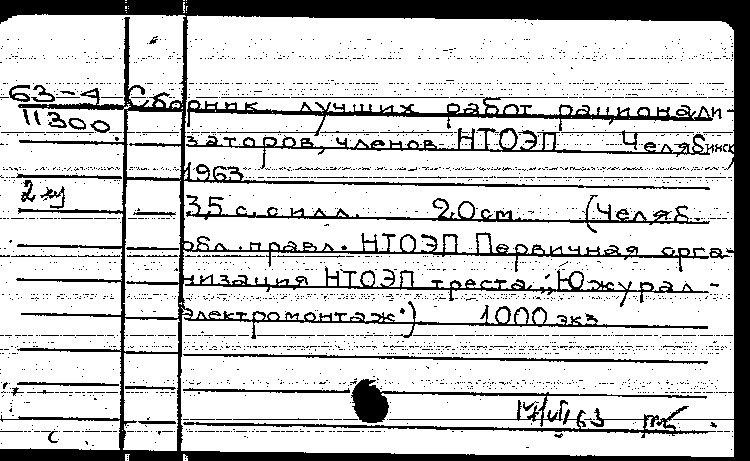 63-4 Сборник лучших работ рационали-
11300. заторов, членов НТОЭП Челябинск,
1963
2 экз 35 с. с илл. 20 см. (Челяб.
обл. правл. НТОЭП Первичная орга-
низация НТОЭП треста „Южурал-
электромонтаж") 1000 экз
17/VI 63